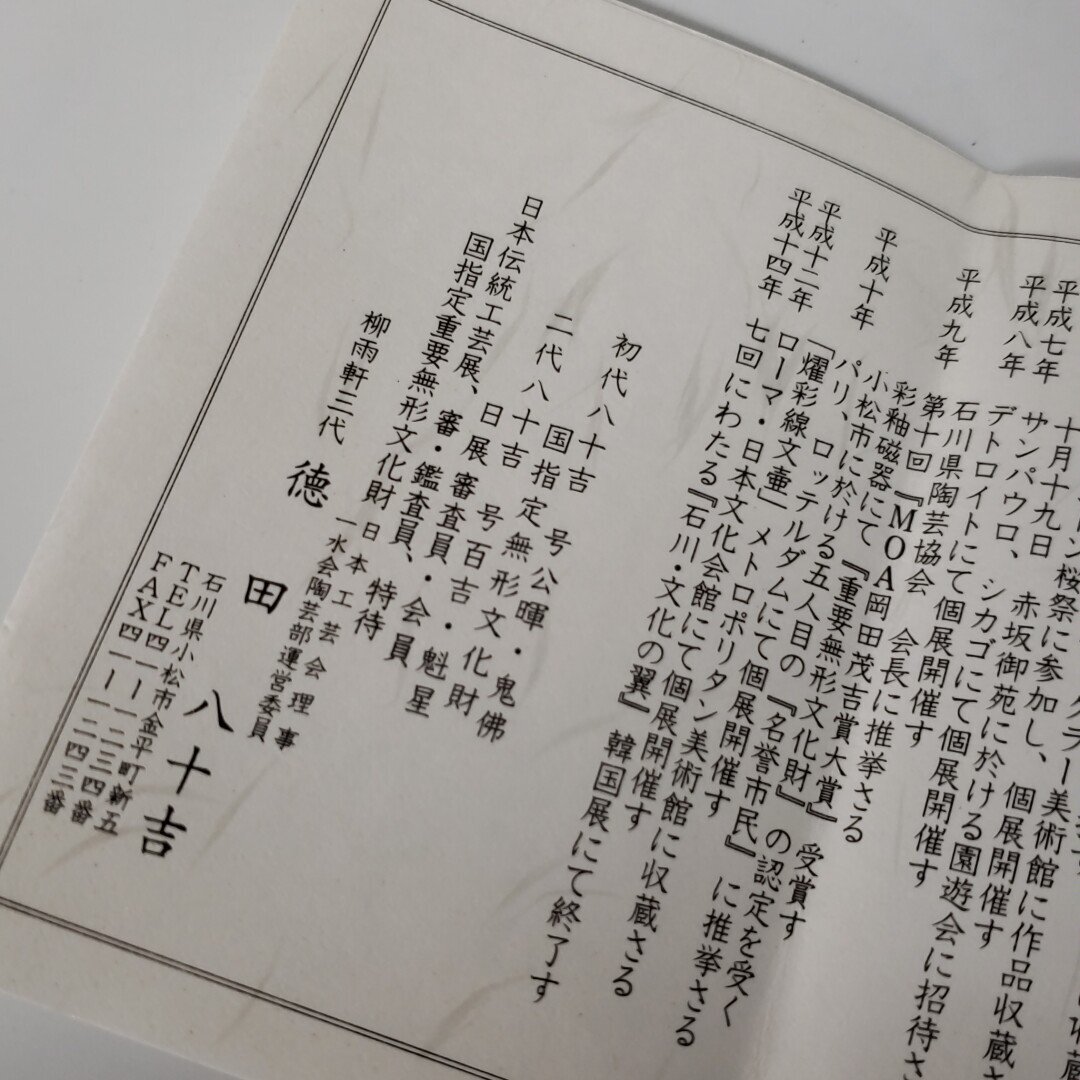 ン桜祭に参加し、個展開催す
平成七年 十月十九日 赤坂御苑に於ける園遊会に招待さ
平成八年 サンパウロ、シカゴにて個展開催す
デトロイトにて個展開催す
平成九年 石川県陶芸協会 会長に推挙さる
第十回『MOA岡田茂吉賞大賞』受賞す
平成十年 彩釉磁器にて『重要無形文化財』の認定を受く
小松市に於ける五人目の『名誉市民』に推挙さる
パリ、ロッテルダムにて個展開催す
平成十二年 「燿彩線文壷」メトロポリタン美術館に収蔵さる
ローマ・日本文化会館にて個展開催す
平成十四年 七回にわたる『石川・文化の翼』韓国展にて終了す
初代八十吉 号公暉・鬼佛
国指定無形文化財
二代八十吉 号百吉・魁星
日展 審査員・会員
日本伝統工芸展、審・鑑査員、特待
国指定重要無形文化財 日本工芸会理事
一水会陶芸部運営委員
柳雨軒三代 徳田八十吉
石川県小松市金平町新五
TEL四一ー一二三四番
FAX四一ー一二四三番